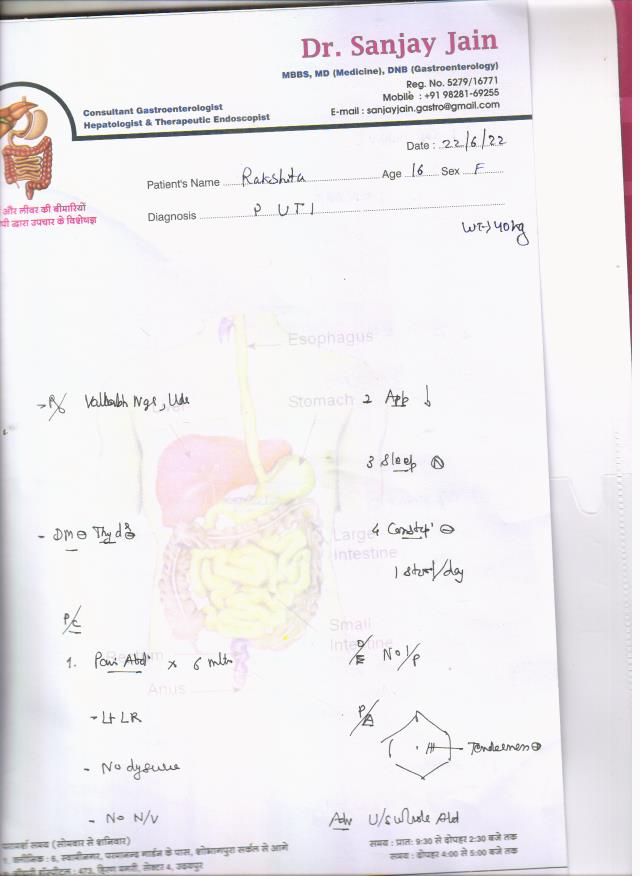 Dr. Sanjay Jain
MBBS, MD (Medicine), DNB (Gastroenterology)
Reg. No. 5279/16771
Mobile : +91 98281-69255
E-mail : sanjayjain.gastro@gmail.com
Consultant Gastroenterologist
Hepatologist & Therapeutic Endoscopist
और लीवर की बीमारियों
पी द्वारा उपचार के विशेषज्ञ
Date : 22/6/22
Patient's Name Rakshita Age 16 Sex F
Diagnosis P UTI
WT→ 40 kg
Esophagus
Liver
Stomach
Large
Intestine
Small
Intestine
Rectum
Anus
Vallabh Ngr, Ude
- DM ⊖ Thyd ⊖
P/C
1. Pain Abd x 6 mts
- Lt LR
- No dysuria
- No N/V
2 App ↓
3 Sleep (N)
4 Constip' ⊖
1 stool/day
No I/P
P/A
Tenderness ⊕
Adv U/s Whole Abd
परामर्श समय (सोमवार से शनिवार)
1. क्लीनिक : 6, स्वामीनगर, परमानन्द गार्डन के पास, शोभागपुरा सर्कल से आगे
समय : प्रात: 9:30 से दोपहर 2:30 बजे तक
473, हिरण मगरी, सेक्टर 4, उदयपुर
समय : दोपहर 4:00 से 5:00 बजे तक